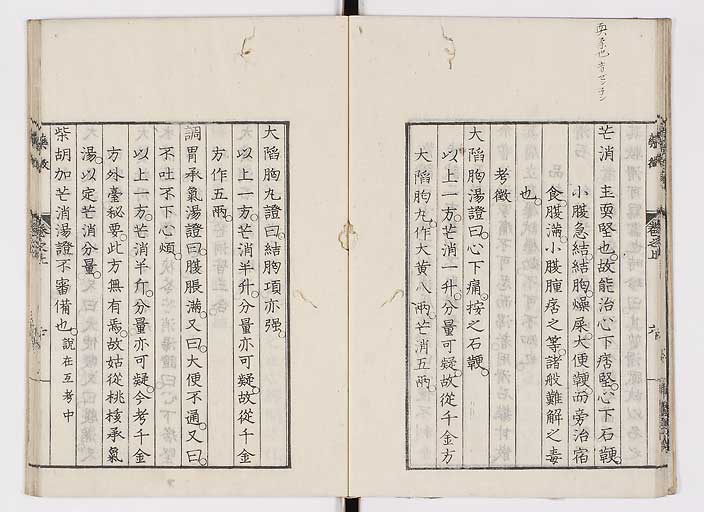 芒消 主耎堅也。故能治心下痞堅。心下石鞕。
小腹急結。結胸。燥屎。大便鞕。而旁治宿
食。腹滿。小腹腫痞之等。諸般難解之毒
也。
考徵
大陷胸湯證曰。心下痛。按之石鞕。
以上一方。芒消一升。分量可疑。故從千金方
大陷胸丸。作大黃八兩。芒消五兩。
大陷胸丸證曰。結胸項亦强。
以上一方。芒消半升。分量亦可疑。故從千金
方作五兩。
調胃承氣湯證曰。腹脹滿。又曰。大便不通。又曰。
不吐不下心煩。
以上一方。芒消半斤。分量亦可疑。今考千金
方外臺秘要。此方無有焉。故姑從桃核承氣
湯。以定芒消分量。
柴胡加芒消湯證不審備也。說在互考中
藥徵
卷之上
六